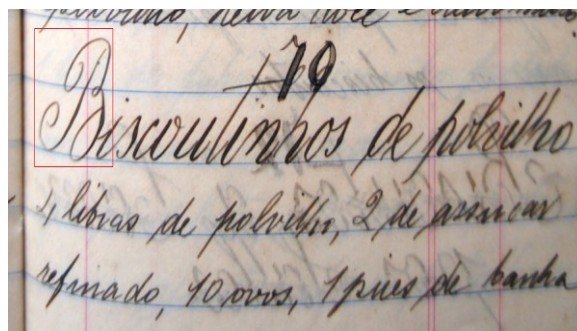 polvilho,
79
Biscoutinhos de polvilho
4 libras de polvilho, 2 de assucar
refinado, 10 ovos, 1 pires de banha